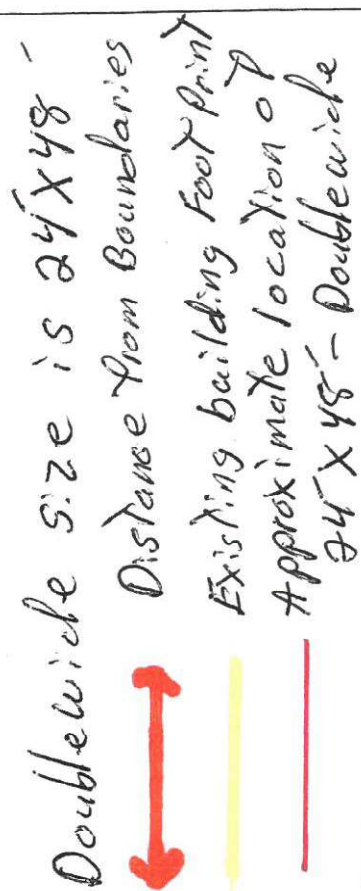 Doublewide size is 24'X48'
Distance from Boundaries
Existing building Foot Print
Approximate location of
24'X48' - Doublewide